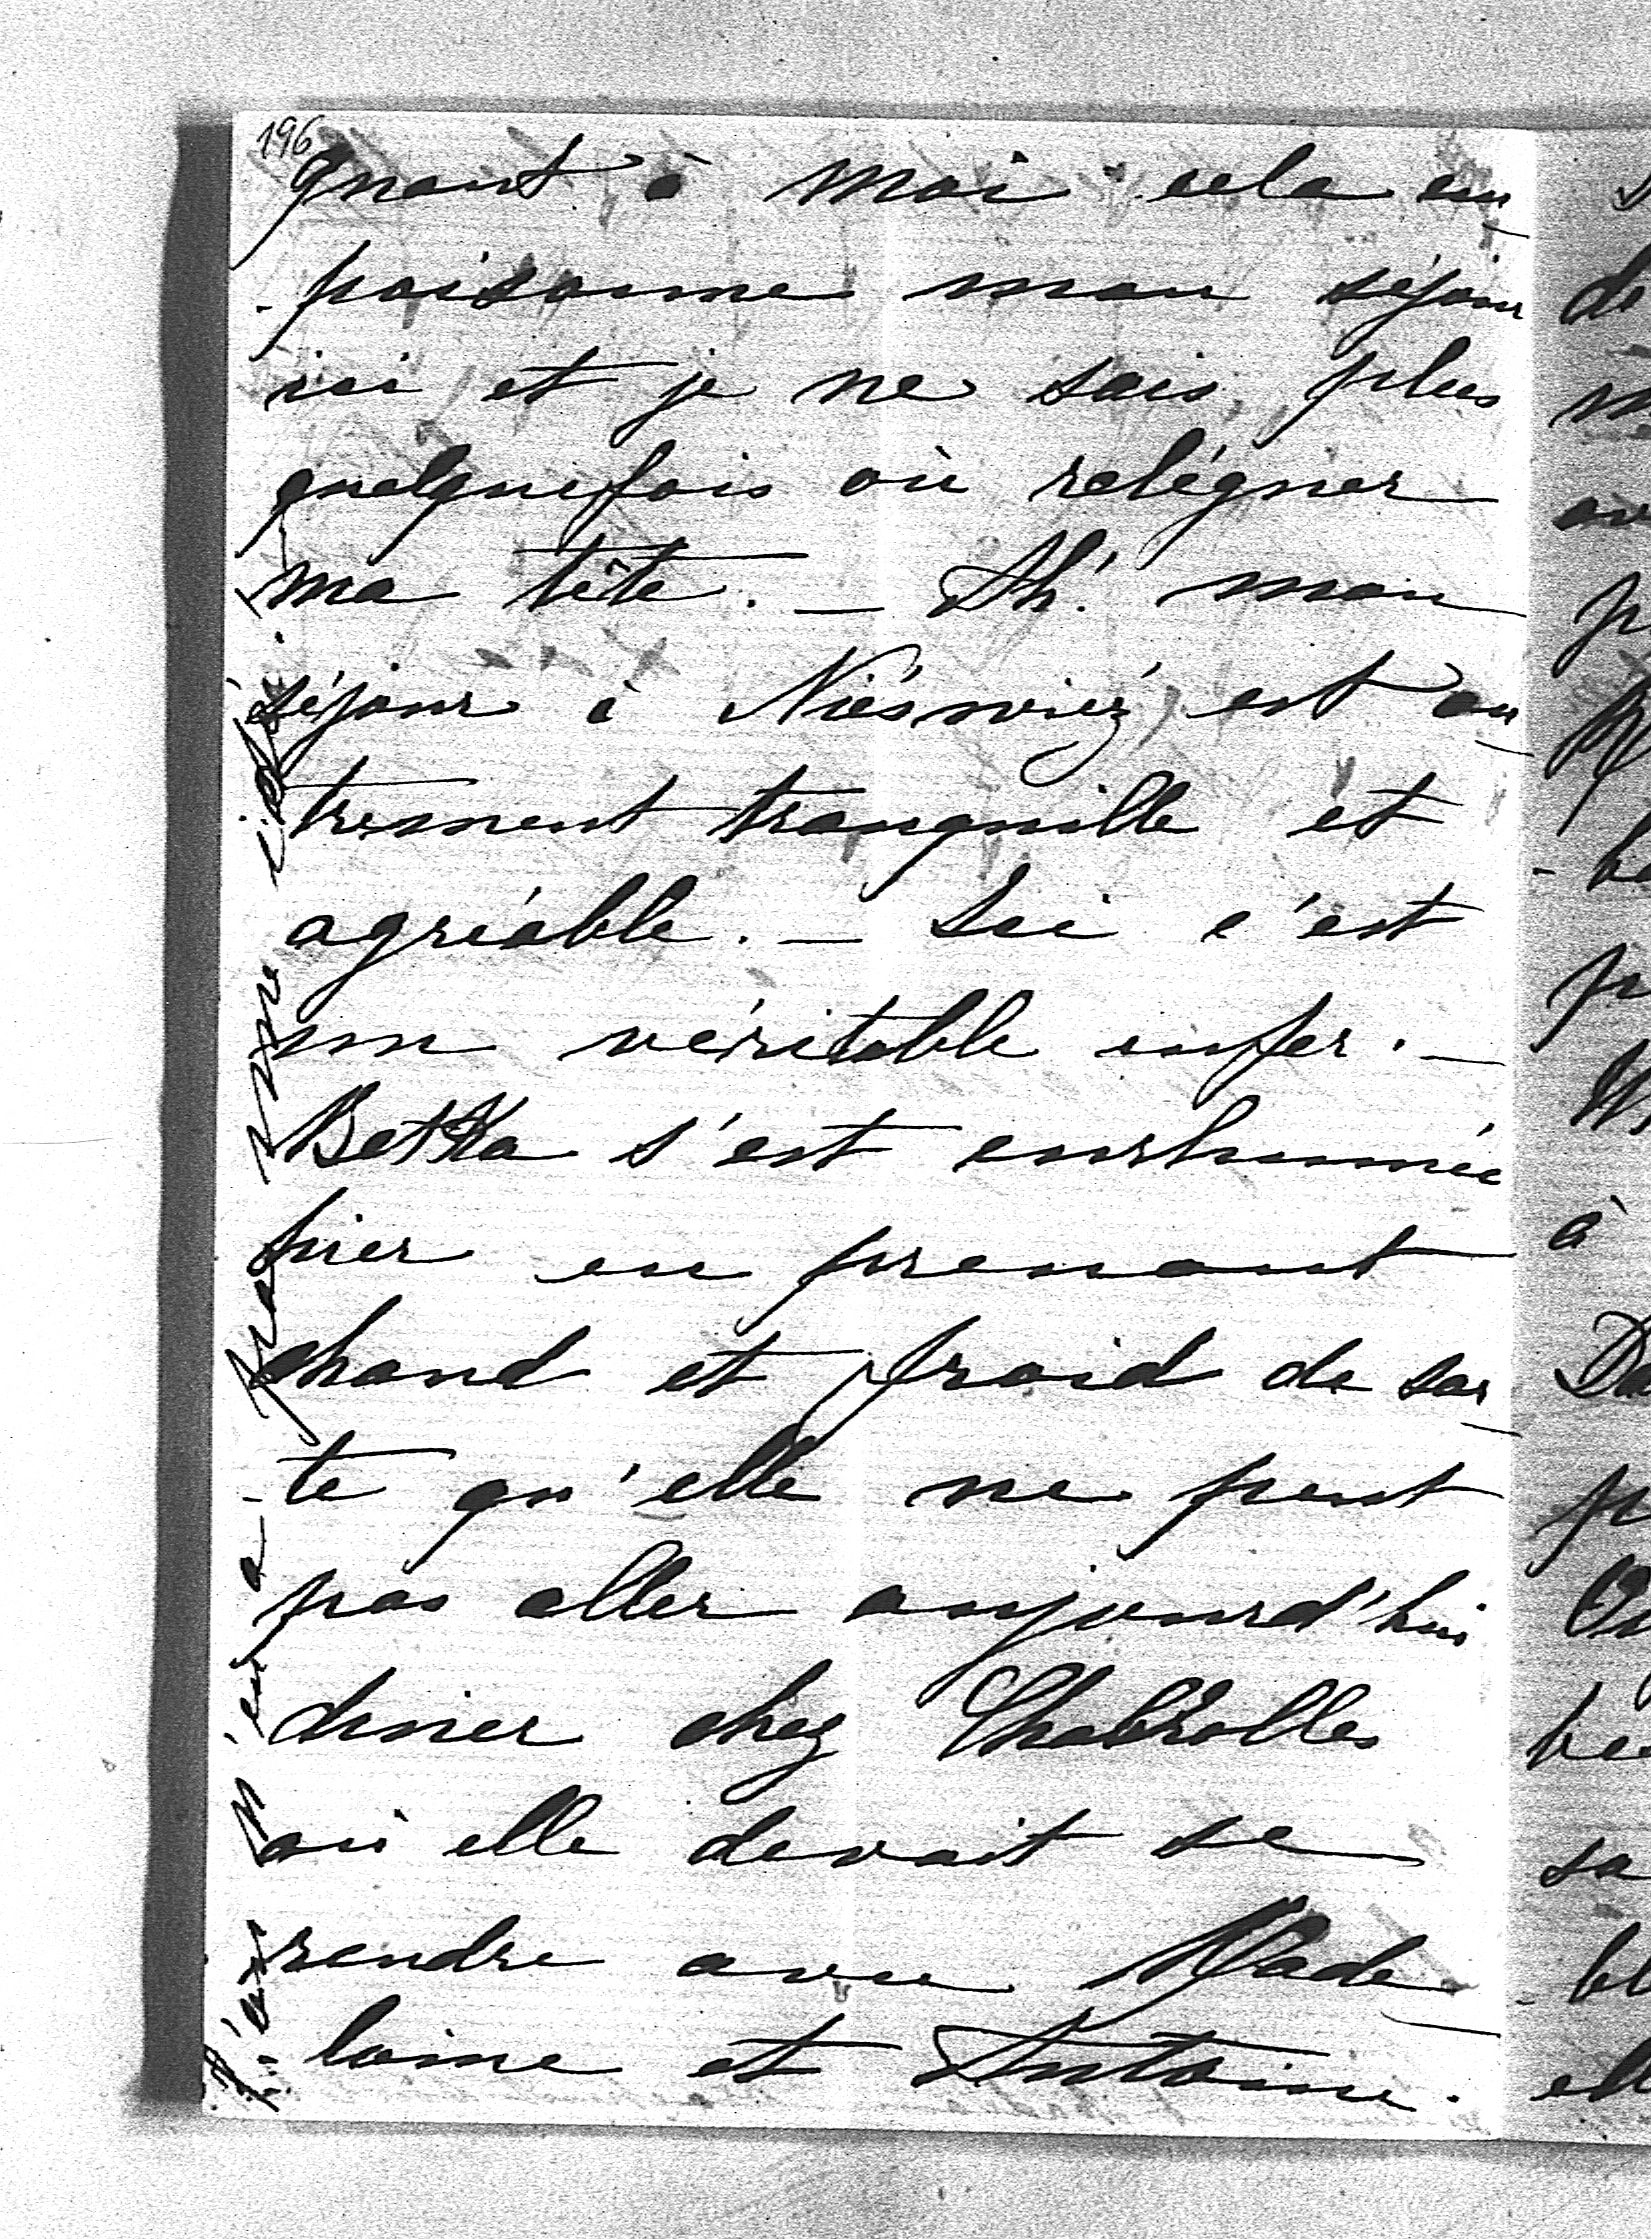 196
quant à moi cela em-
-poisonne mon séjour
ici et je ne sais plus
quelquefois où reléguer
ma tête. — Ah! mon
séjour à Nieswiez est au-
trement tranquille et
agréable. — Ici c'est
un véritable enfer. —
Betka s'est enrhumée
hier en prenant
chaud et froid de sor-
-te qu'elle ne peut
pas aller aujourd'hui
diner chez Chabrolles
où elle devait se
rendre avec Made-
-leine et Antoine.